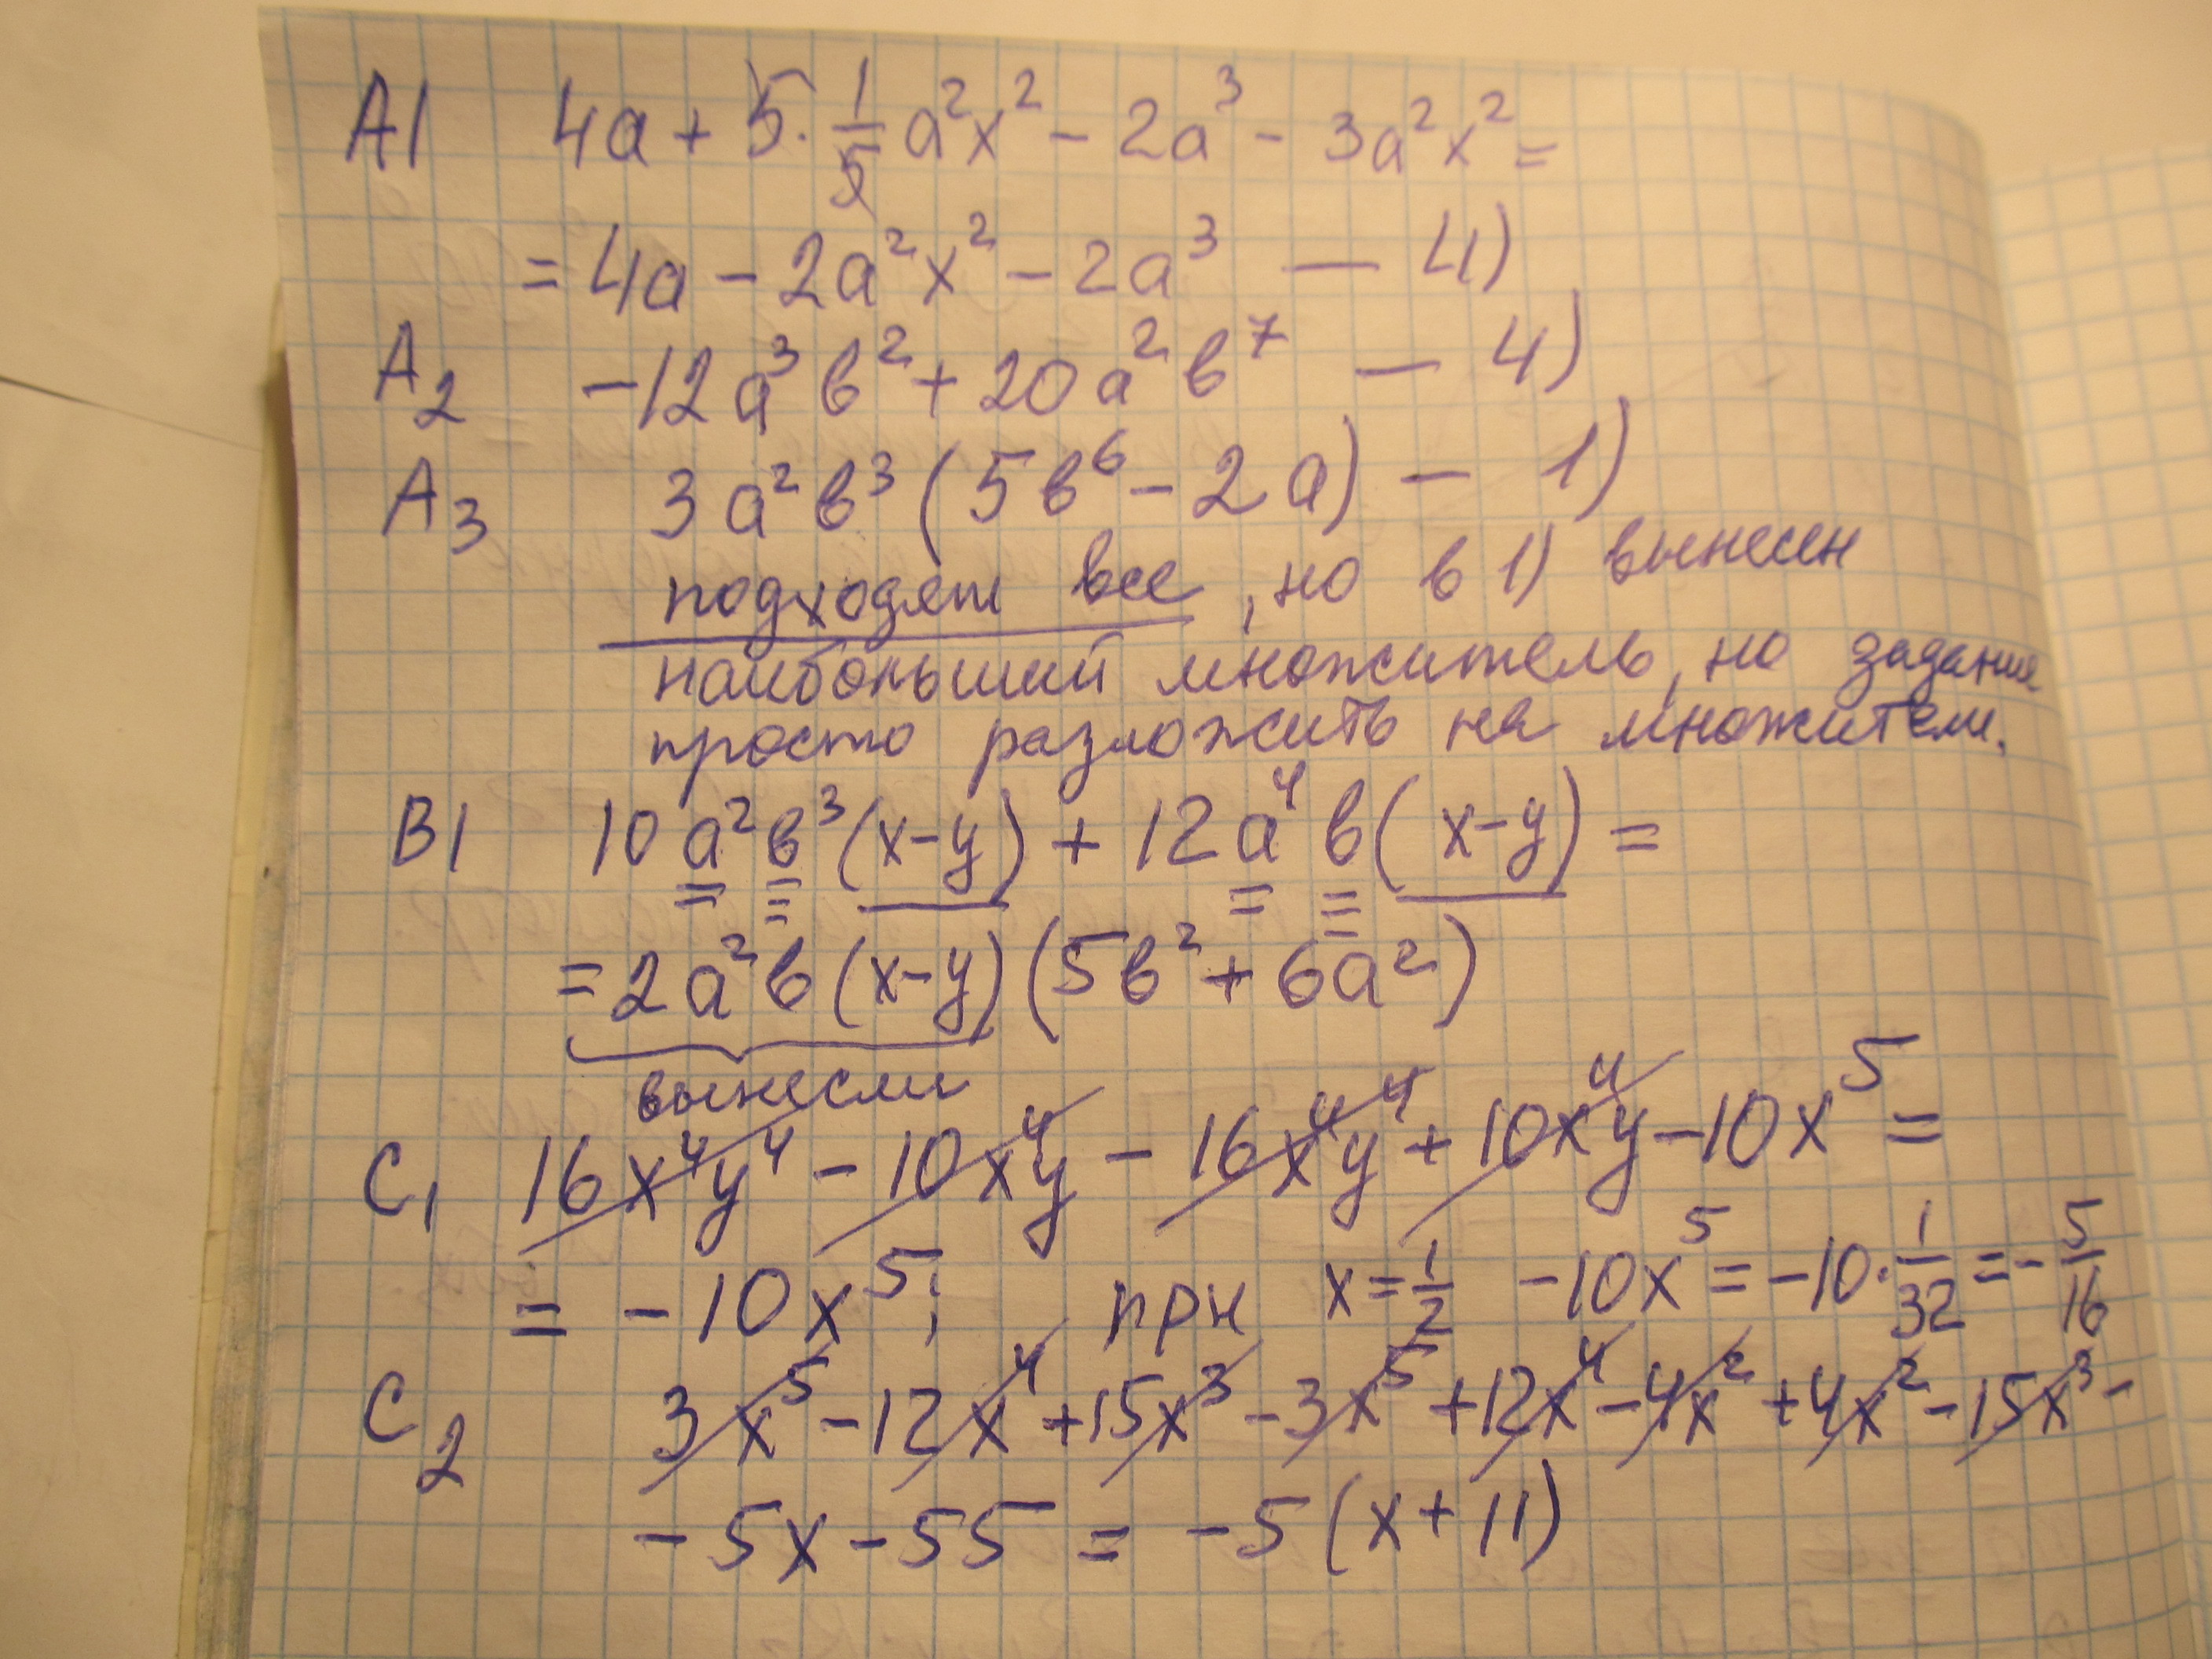 А1 4a + 5 · 1/5 a²x² − 2a³ − 3a²x² =
= 4a − 2a²x² − 2a³ — 4)
А2 −12a³в² + 20a²в⁷ — 4)
А3 3a²в³(5в⁶ − 2a) — 1)
подходят все, но в 1) вынесен
наибольший множитель, но задание
просто разложить на множители.
В1 10a²в³(x−y) + 12a⁴в(x−y) =
= 2a²в(x−y)(5в² + 6a²)
вынесли
С1 16x⁴y⁴ − 10x⁴y − 16x⁴y⁴ + 10x⁴y − 10x⁵ =
= −10x⁵; при x = 1/2 −10x⁵ = −10 · 1/32 = −5/16
С2 3x⁵ − 12x⁴ + 15x³ − 3x⁵ + 12x⁴ − 4x² + 4x² − 15x³ −
− 5x − 55 = −5(x + 11)